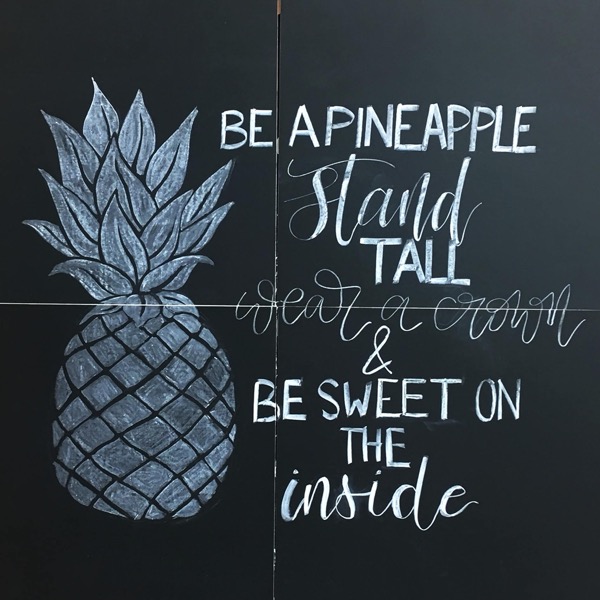 BE A PINEAPPLE
Stand
TALL
wear a crown
&
BE SWEET ON
THE
inside